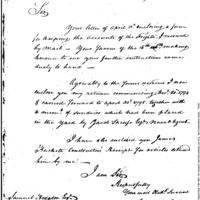 Sir
Your letter of april 15 enclosing a form
for keeping the accounts of the Frigate, I received
by Mail — Your favor of the 16th making
known to me your further instructions came
duly to hand.
Agreeably to the former actions I now
enclose you my actions commencing
& carried forward to april 30, 1795 together with
amount of sundries which has been placed
in the Yard by Jacob Sheafe Esqr
I have also enclosed you James
Hacketts Constructors Receipt for articles
him by me —
I am Sir
Respectfully
Your most Obdt. Servant
Samuel Hodgdon Esqr